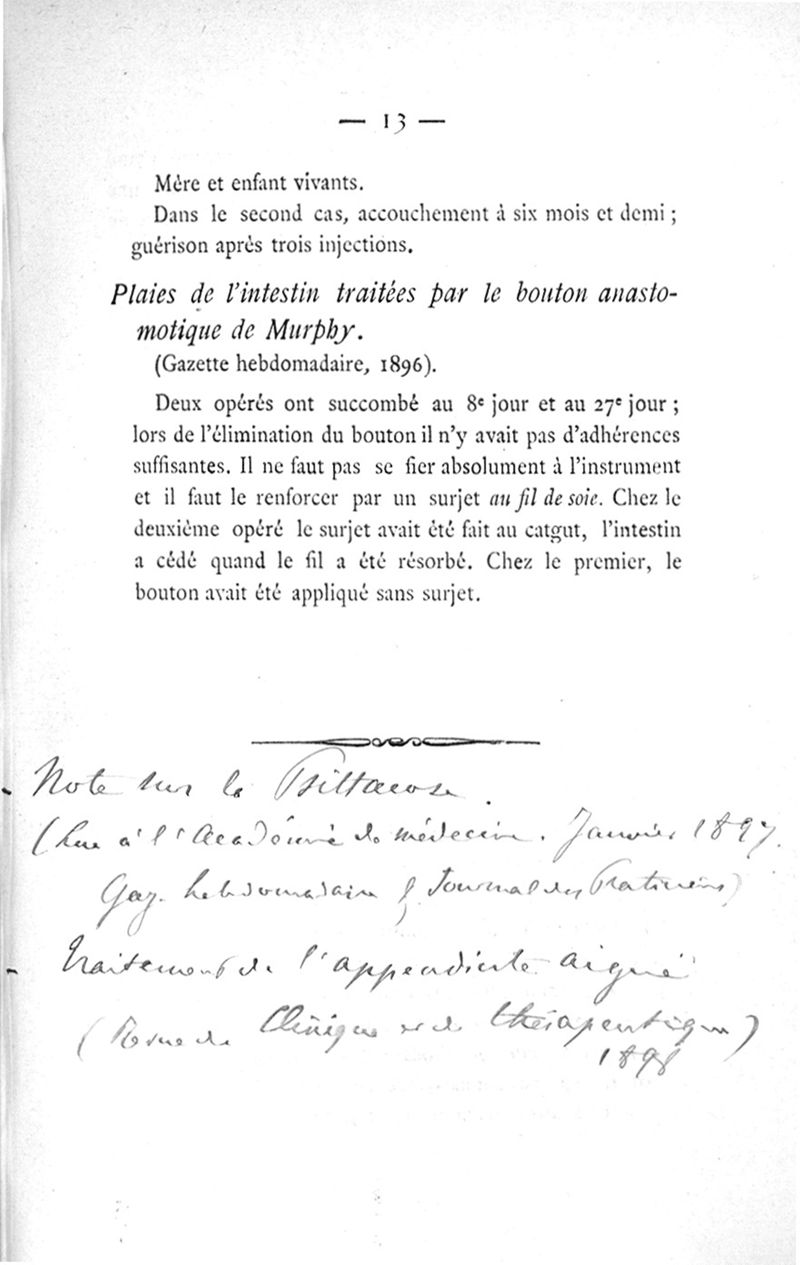 — 13 —
Mère et enfant vivants.
Dans le second cas, accouchement à six mois et demi ;
guérison après trois injections.
Plaies de l'intestin traitées par le bouton anasto-
motique de Murphy.
(Gazette hebdomadaire, 1896).
Deux opérés ont succombé au 8e jour et au 27e jour ;
lors de l'élimination du bouton il n'y avait pas d'adhérences
suffisantes. Il ne faut pas se fier absolument à l'instrument
et il faut le renforcer par un surjet au fil de soie. Chez le
deuxième opéré le surjet avait été fait au catgut, l'intestin
a cédé quand le fil a été résorbé. Chez le premier, le
bouton avait été appliqué sans surjet.
- Note sur la Psittacose.
(Lue à l'Académie de médecine. Janvier 1897.
Gaz. hebdomadaire & Journal des Praticiens)
- Traitement de l'appendicite aiguë
(Revue de Clinique et de thérapeutique)
1898